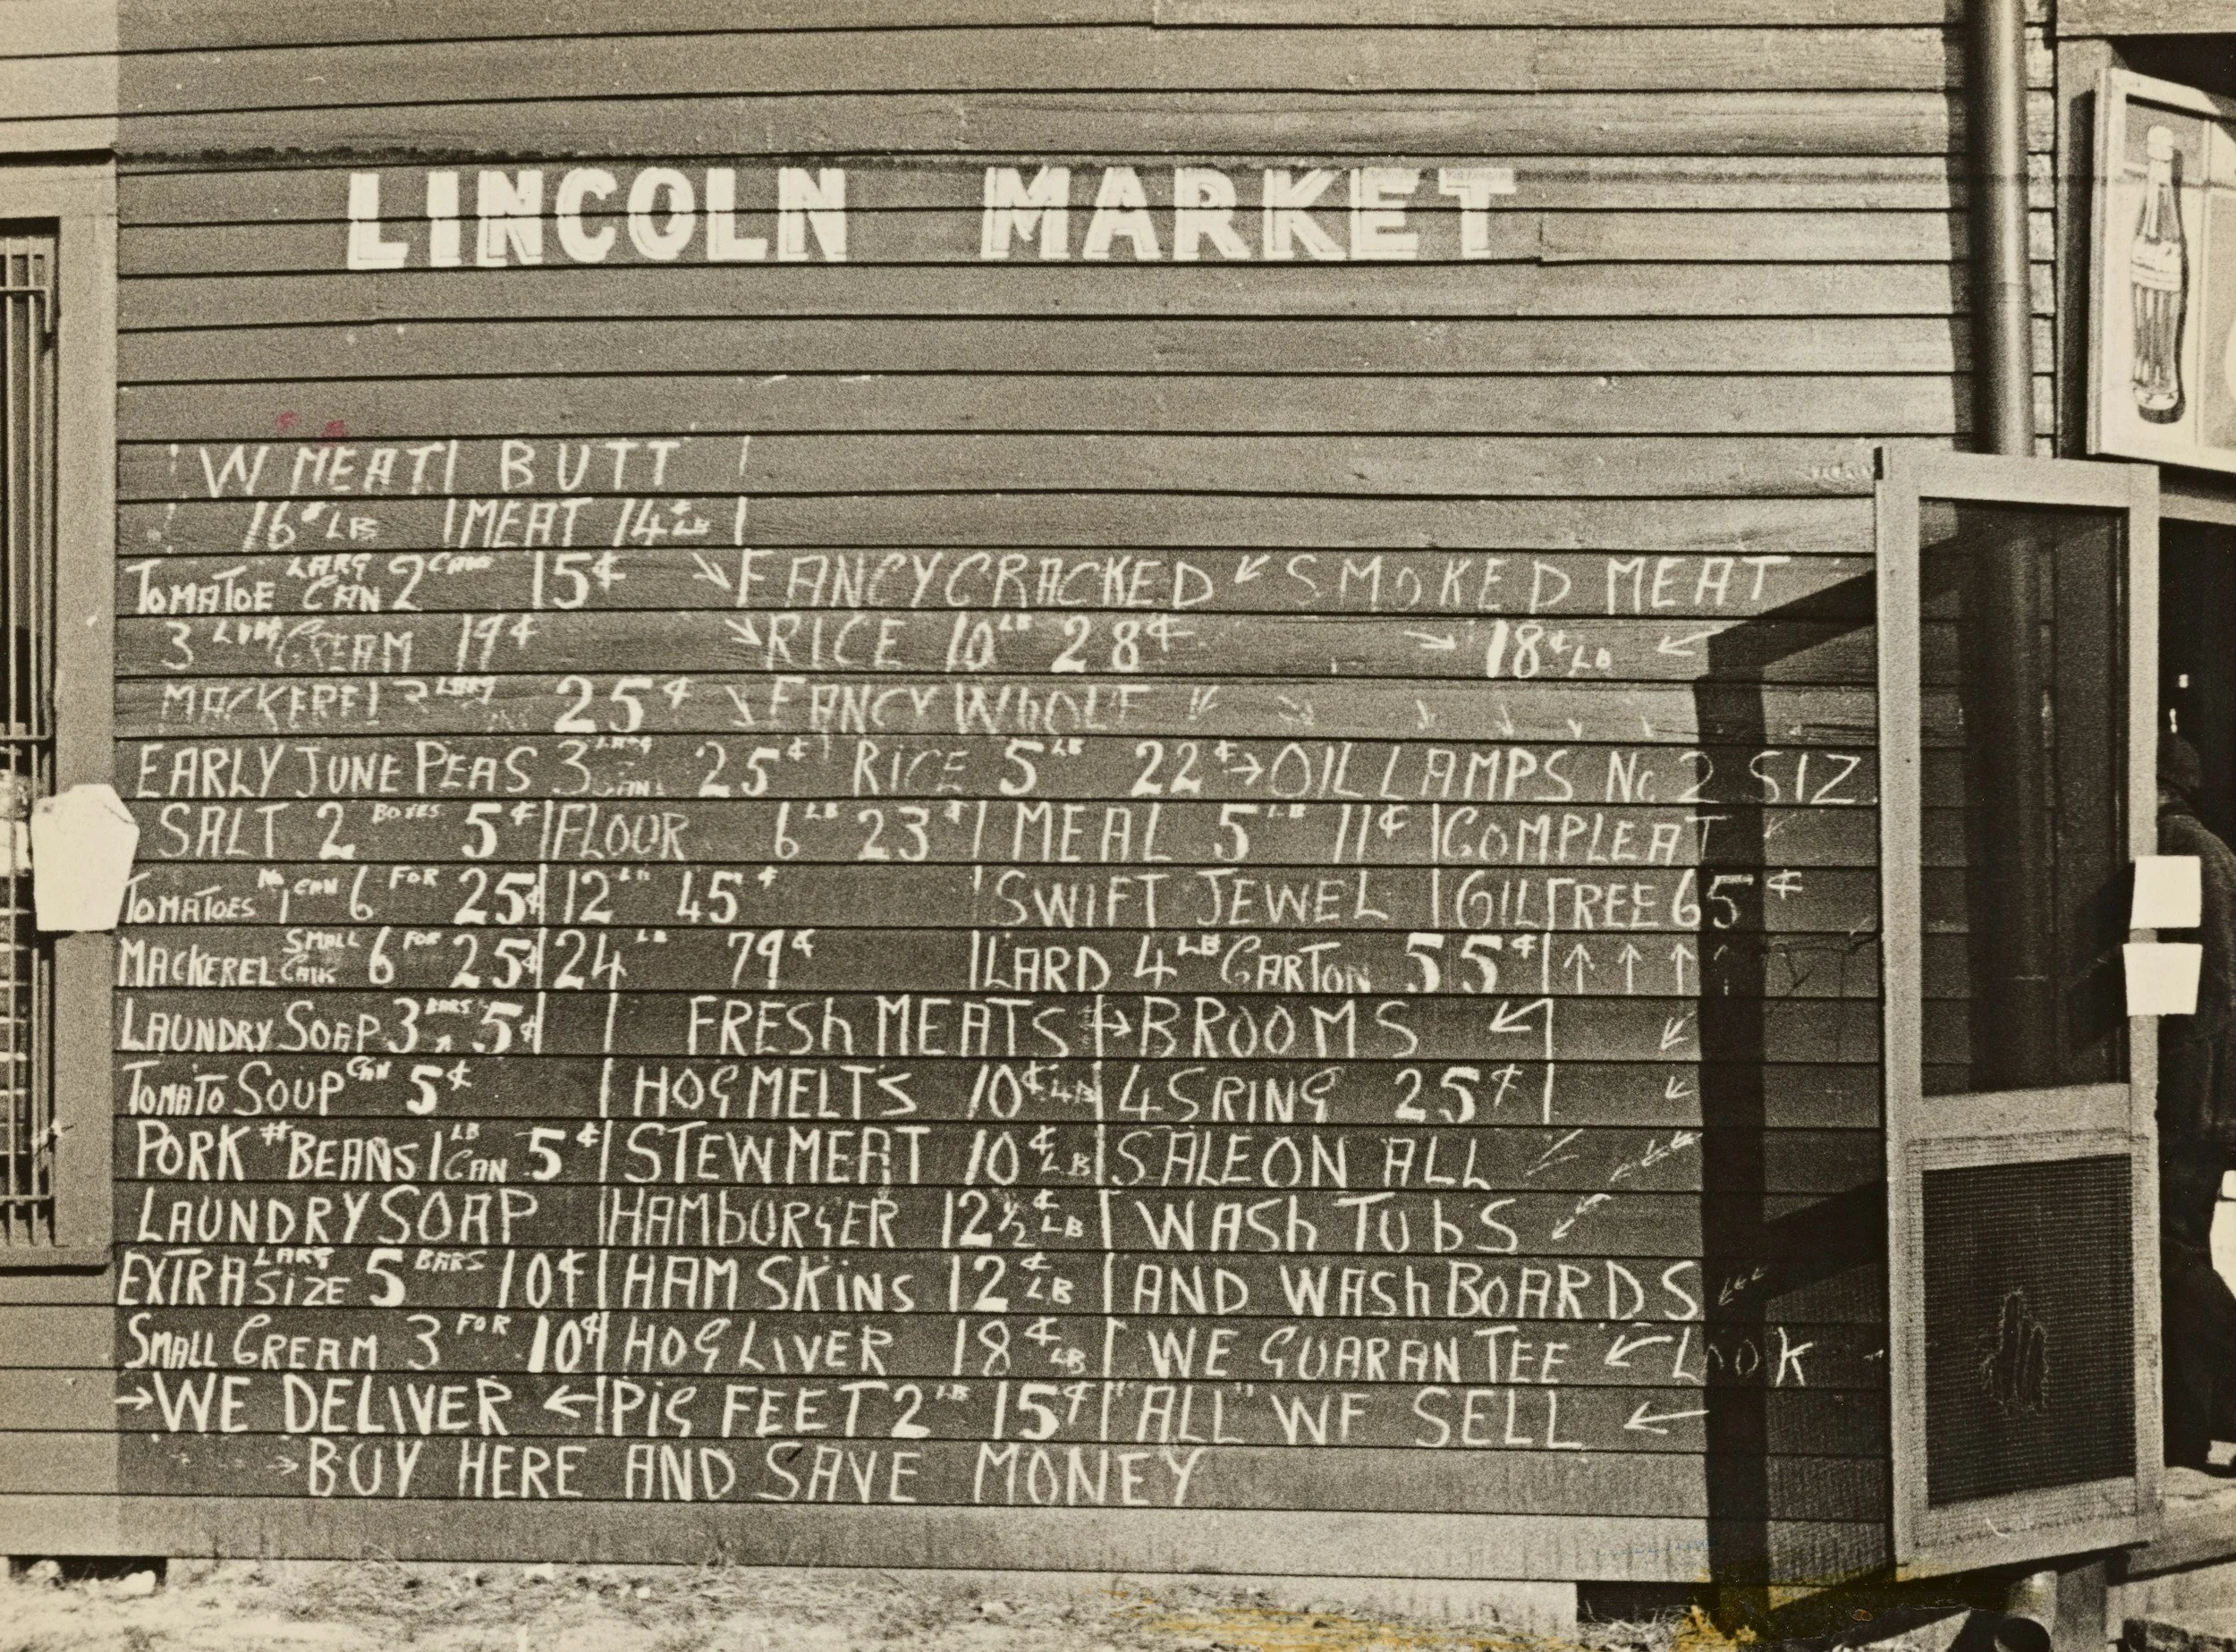 LINCOLN MARKET
W MEAT | BUTT |
16¢ LB | MEAT 14¢ LB |
TOMATOE LARG CAN 2 CANS 15¢ FANCY CRACKED SMOKED MEAT
3 CREAM 19¢ RICE 10 LB 28¢ 18¢ LB
MACKEREL 25¢ FANCY WhOLE
EARLY JUNE PEAS 3 LARG CANS 25¢ RICE 5 LB 22¢ → OIL LAMPS No 2 SIZ
SALT 2 BOXES 5¢ | FLOUR 6 LB 23¢ | MEAL 5 LB 11¢ | COMPLEAT
TOMATOES No 1 CAN 6 FOR 25¢ | 12 LB 45¢ | SWIFT JEWEL | GILTREE 65¢
MACKEREL SMALL 6 FOR 25¢ | 24 LB 79¢ | LARD 4 LB CARTON 55¢ | ↑ ↑ ↑ ↑
LAUNDRY SOAP 3 BARS 5¢ | | FRESh MEATS → BROOMS ↙
TOMATO SOUP CAN 5¢ | HOG MELT'S 10¢ LB | 4 SRING 25¢ |
PORK # BEANS 1 LB CAN 5¢ | STEW MEAT 10¢ LB | SALE ON ALL
LAUNDRY SOAP | HAMbURGER 12½¢ LB | WASh TUbS
EXTRA LARG SIZE 5 BARS 10¢ | HAM SKiNS 12¢ LB | AND WASh BOARDS
SMALL CREAM 3 FOR 10¢ | HOG LIVER 18¢ LB | WE GUARANTEE ← LOOK
→ WE DELIVER ← | PiG FEET 2 LB 15¢ | "ALL" WE SELL ←
→ BUY HERE AND SAVE MONEY